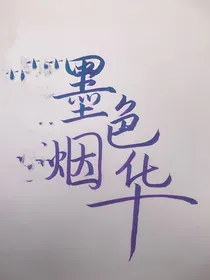 墨色
烟华